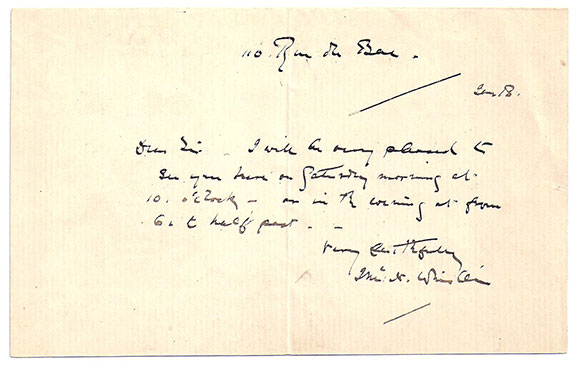 110. Rue du Bac.
Jan 18.
Dear Sir - I will be very pleased to
see you here on Saturday morning at
10. o'clock - or in the evening at from
6. to half past. -
Very faithfully
J. McN. Whistler